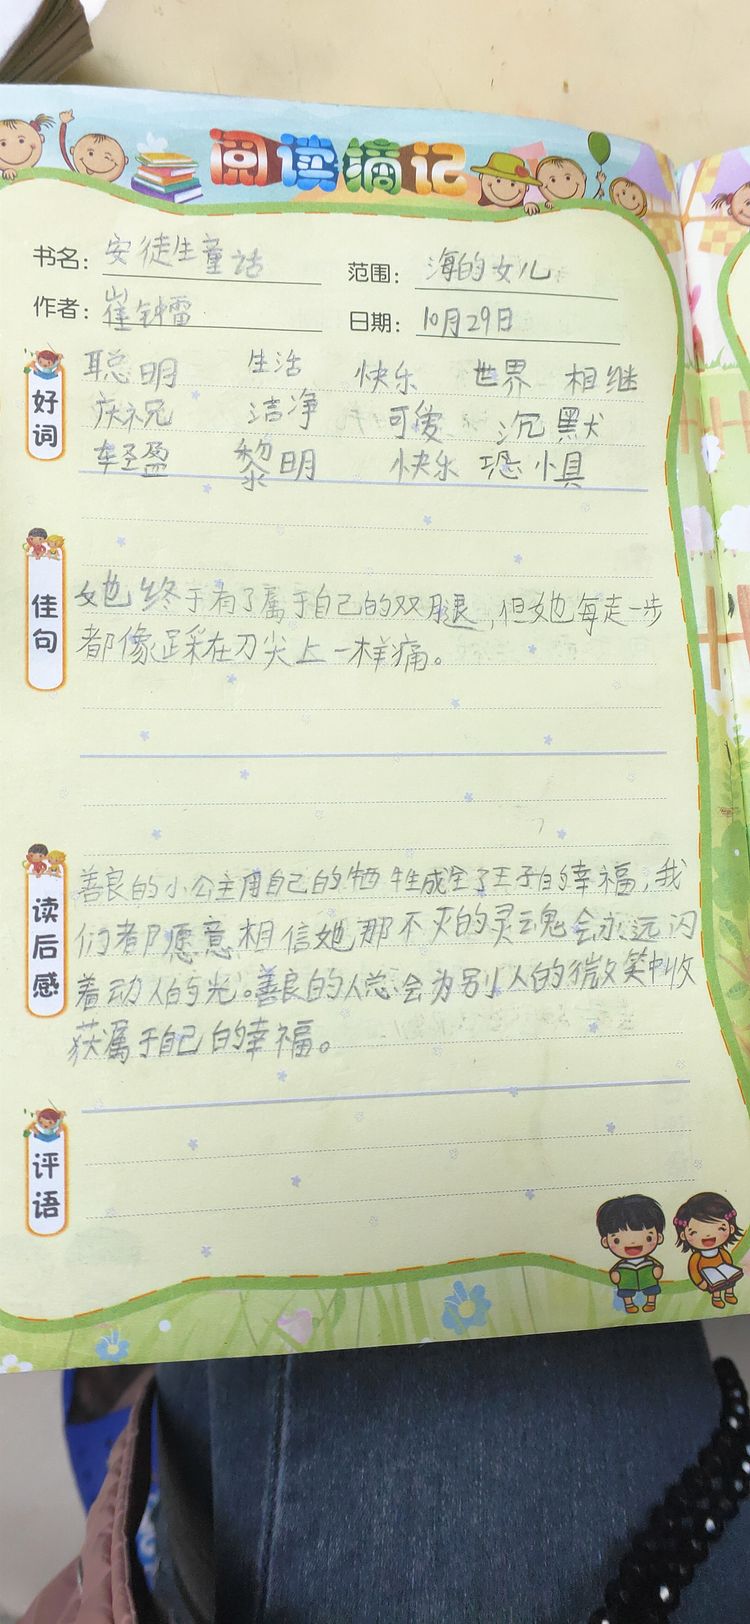 阅读摘记
书名：安徒生童话 范围：海的女儿
作者：崔钟雷 日期：10月29日
好词
聪明 生活 快乐 世界 相继
庆祝 洁净 可爱 沉默
轻盈 黎明 快乐 恐惧
佳句
她终于有了属于自己的双腿，但她每走一步
都像踩在刀尖上一样痛。
读后感
善良的小公主用自己的牺牲成全了王子的幸福，我
们都愿意相信她那不灭的灵魂会永远闪
着动人的光。善良的人总会为别人的微笑中收
获属于自己的幸福。
评语